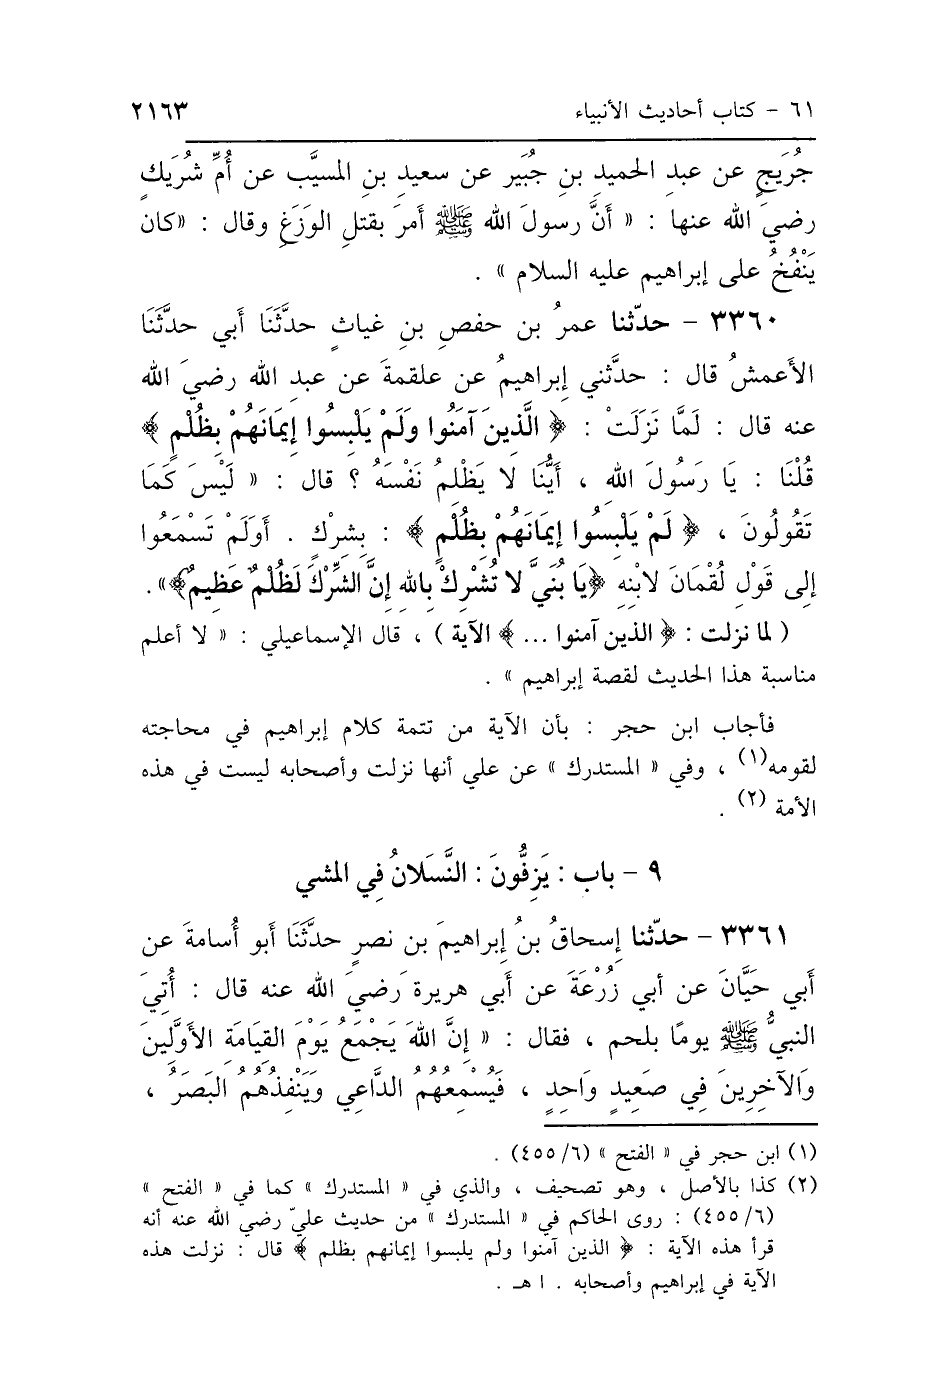 ٦١ – كتاب أحاديث الأنبياء ٢١٦٣
جُرَيجٍ عن عبدِ الحميدِ بنِ جُبَير عن سعيدِ بنِ المسيَّب عن أُمِّ شُرَيكٍ
رضيَ الله عنها : « أنَّ رسولَ الله ﷺ أمرَ بقتلِ الوَزَغِ وقال : «كان
يَنْفُخُ على إبراهيم عليه السلام » .
٣٣٦٠ – حدّثنا عمرُ بن حفصِ بنِ غياثٍ حدَّثَنَا أبي حدَّثَنَا
الأعمشُ قال : حدَّثني إبراهيمُ عن علقمةَ عن عبدِ الله رضيَ الله
عنه قال : لَمَّا نَزَلَتْ : ﴿ الَّذينَ آمَنُوا وَلَمْ يَلْبِسُوا إيمَانَهُمْ بِظُلْمٍ ﴾
قُلْنَا : يَا رَسُولَ الله ، أَيُّنَا لا يَظْلِمُ نَفْسَهُ ؟ قال : « لَيْسَ كَمَا
تَقُولُونَ ، ﴿ لَمْ يَلْبِسُوا إيمَانَهُمْ بِظُلْمٍ ﴾ : بِشِرْكٍ . أَوَلَمْ تَسْمَعُوا
إلى قَوْلِ لُقْمَانَ لابْنِهِ ﴿يَا بُنَيَّ لا تُشْرِكْ بِالله إنَّ الشِّرْكَ لَظُلْمٌ عَظِيمٌ﴾» .
( لما نزلت : ﴿ الذين آمنوا ... ﴾ الآية ) ، قال الإسماعيلي : « لا أعلم
مناسبة هذا الحديث لقصة إبراهيم » .
فأجاب ابن حجر : بأن الآية من تتمة كلام إبراهيم في محاجته
لقومه(١) ، وفي « المستدرك » عن علي أنها نزلت وأصحابه ليست في هذه
الأمة (٢) .
٩ – باب : يَزِفُّونَ : النَّسَلانُ فِي المشي
٣٣٦١ – حدّثنا إسحاقُ بنُ إبراهيمَ بن نصرٍ حدَّثَنَا أبو أُسامةَ عن
أبي حَيَّانَ عن أبي زُرْعَةَ عن أبي هريرة رَضيَ الله عنه قال : أُتِيَ
النبيُّ ﷺ يومًا بلحم ، فقال : « إنَّ اللهَ يَجْمَعُ يَوْمَ القِيَامَةِ الأوَّلِينَ
وَالآخِرِينَ فِي صَعِيدٍ وَاحِدٍ ، فَيُسْمِعُهُمُ الدَّاعِي وَيَنْفِذُهُمُ البَصَرُ ،
(١) ابن حجر في « الفتح » (٤٥٥/٦) .
(٢) كذا بالأصل ، وهو تصحيف ، والذي في « المستدرك » كما في « الفتح »
(٤٥٥/٦) : روى الحاكم في « المستدرك » من حديث عليّ رضي الله عنه أنه
قرأ هذه الآية : ﴿ الذين آمنوا ولم يلبسوا إيمانهم بظلم ﴾ قال : نزلت هذه
الآية في إبراهيم وأصحابه . ا هـ .